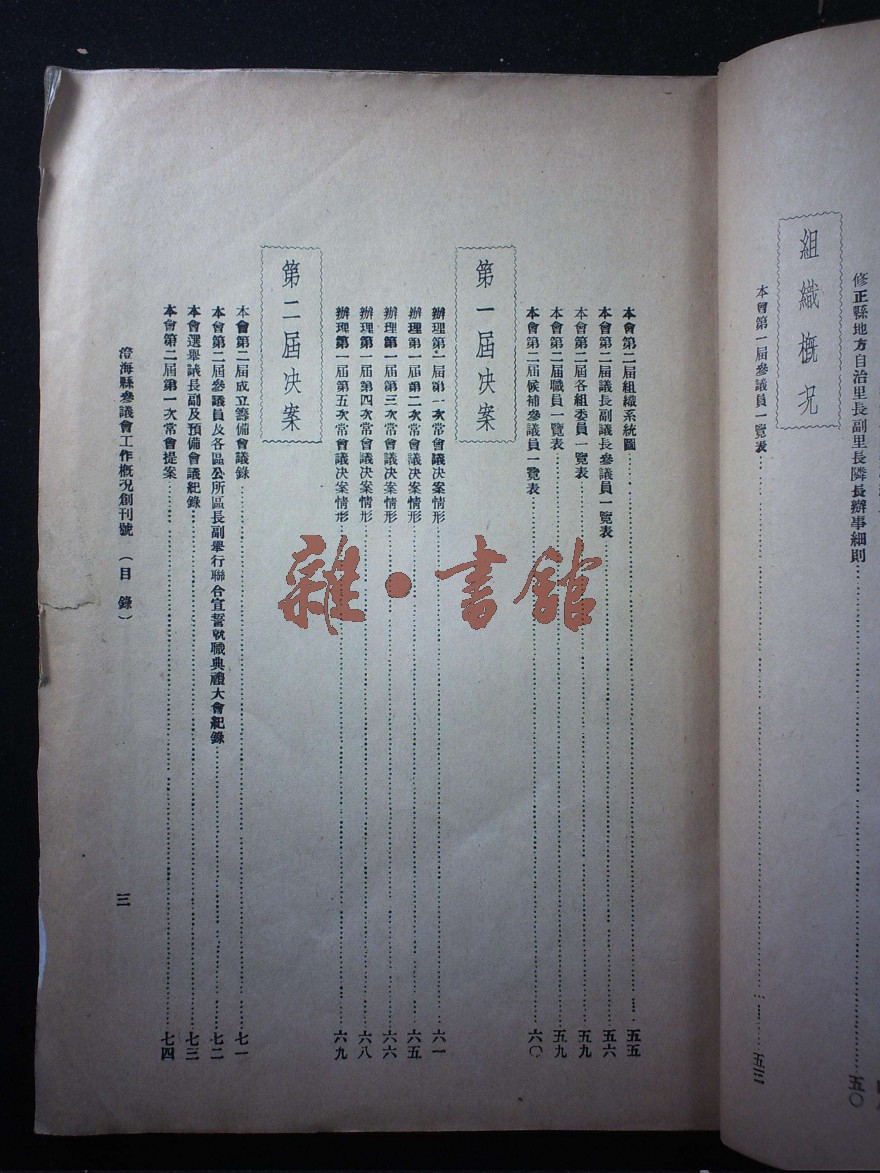 修正縣地方自治里長副里長隣長辦事細則……五〇
組織概況
本會第一屆參議員一覽表……五三
本會第二屆組織系統圖……五五
本會第二屆議長副議長參議員一覽表……五六
本會第二屆各組委員一覽表……五九
本會第二屆職員一覽表……五九
本會第二屆候補參議員一覽表……六〇
第一屆决案
辦理第一屆第一次常會議决案情形……六一
辦理第一屆第二次常會議决案情形……六五
辦理第一屆第三次常會議决案情形……六六
辦理第一屆第四次常會議决案情形……六八
辦理第一屆第五次常會議决案情形……六九
第二屆决案
本會第二屆成立籌備會議錄……七一
本會第二屆參議員及各區公所區長副舉行聯合宣誓就職典禮大會紀錄……七二
本會選舉議長副及預備會議紀錄……七三
本會第二屆第一次常會提案……七四
澄海縣參議會工作概況創刊號　（目錄）　三
雜·書館